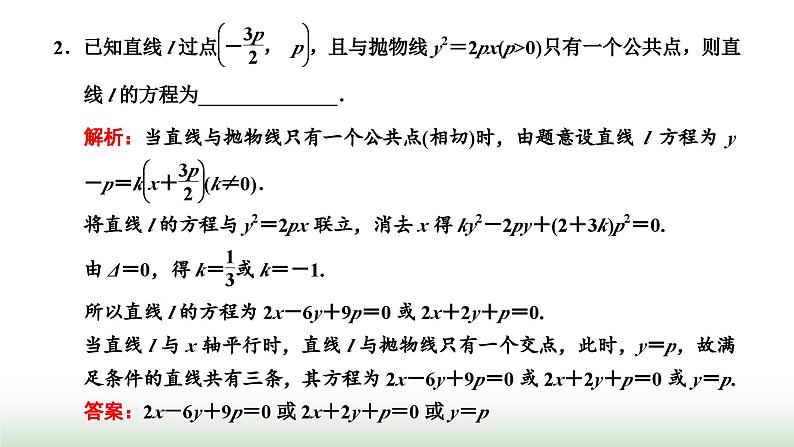 2．已知直线 l 过点(－3p/2， p)，且与抛物线 y²＝2px(p>0)只有一个公共点，则直
线 l 的方程为____________．
解析：当直线与抛物线只有一个公共点(相切)时，由题意设直线 l 方程为 y
－p＝k(x＋3p/2)(k≠0)．
将直线 l 的方程与 y²＝2px 联立，消去 x 得 ky²－2py＋(2＋3k)p²＝0.
由 Δ＝0，得 k＝1/3或 k＝－1.
所以直线 l 的方程为 2x－6y＋9p＝0 或 2x＋2y＋p＝0.
当直线 l 与 x 轴平行时，直线 l 与抛物线只有一个交点，此时，y＝p，故满
足条件的直线共有三条，其方程为 2x－6y＋9p＝0 或 2x＋2y＋p＝0 或 y＝p.
答案：2x－6y＋9p＝0 或 2x＋2y＋p＝0 或 y＝p